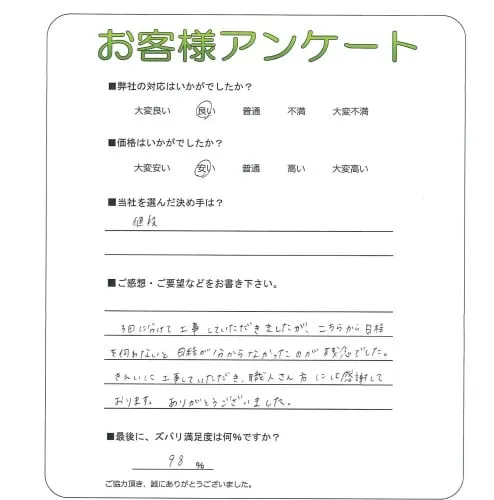 お客様アンケート
■弊社の対応はいかがでしたか？
大変良い 良い 普通 不満 大変不満
■価格はいかがでしたか？
大変安い 安い 普通 高い 大変高い
■当社を選んだ決め手は？
値段
■ご感想・ご要望などをお書き下さい。
3回に分けて工事していただきましたが、こちらから日程
を伺わないと日程が分からなかったのが残念でした。
きれいに工事していただき、職人さん方には感謝して
おります。ありがとうございました。
■最後に、ズバリ満足度は何%ですか？
98 %
ご協力頂き、誠にありがとうございました。